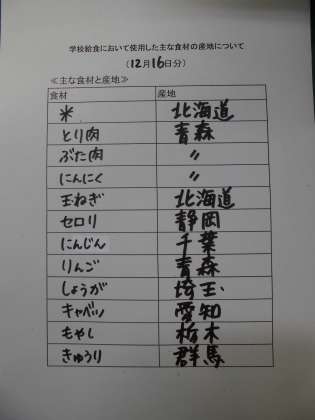 学校給食において使用した主な食材の産地について
(12月16日分)
≪主な食材と産地≫
食材 産地
米 北海道
とり肉 青森
ぶた肉 〃
にんにく 〃
玉ねぎ 北海道
セロリ 静岡
にんじん 千葉
りんご 青森
しょうが 埼玉
キャベツ 愛知
もやし 栃木
きゅうり 群馬